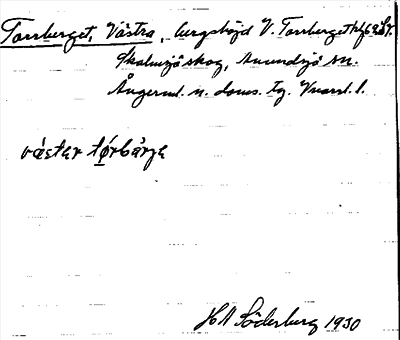 Torrberget, Västra, bergshöjd V. Torrberget
Skalmsjö skog, Anundsjö sn.
Ångerml. n. doms. tg. Vnorrl. l.
väster tǫrbärʒe
H A Söderberg 1930